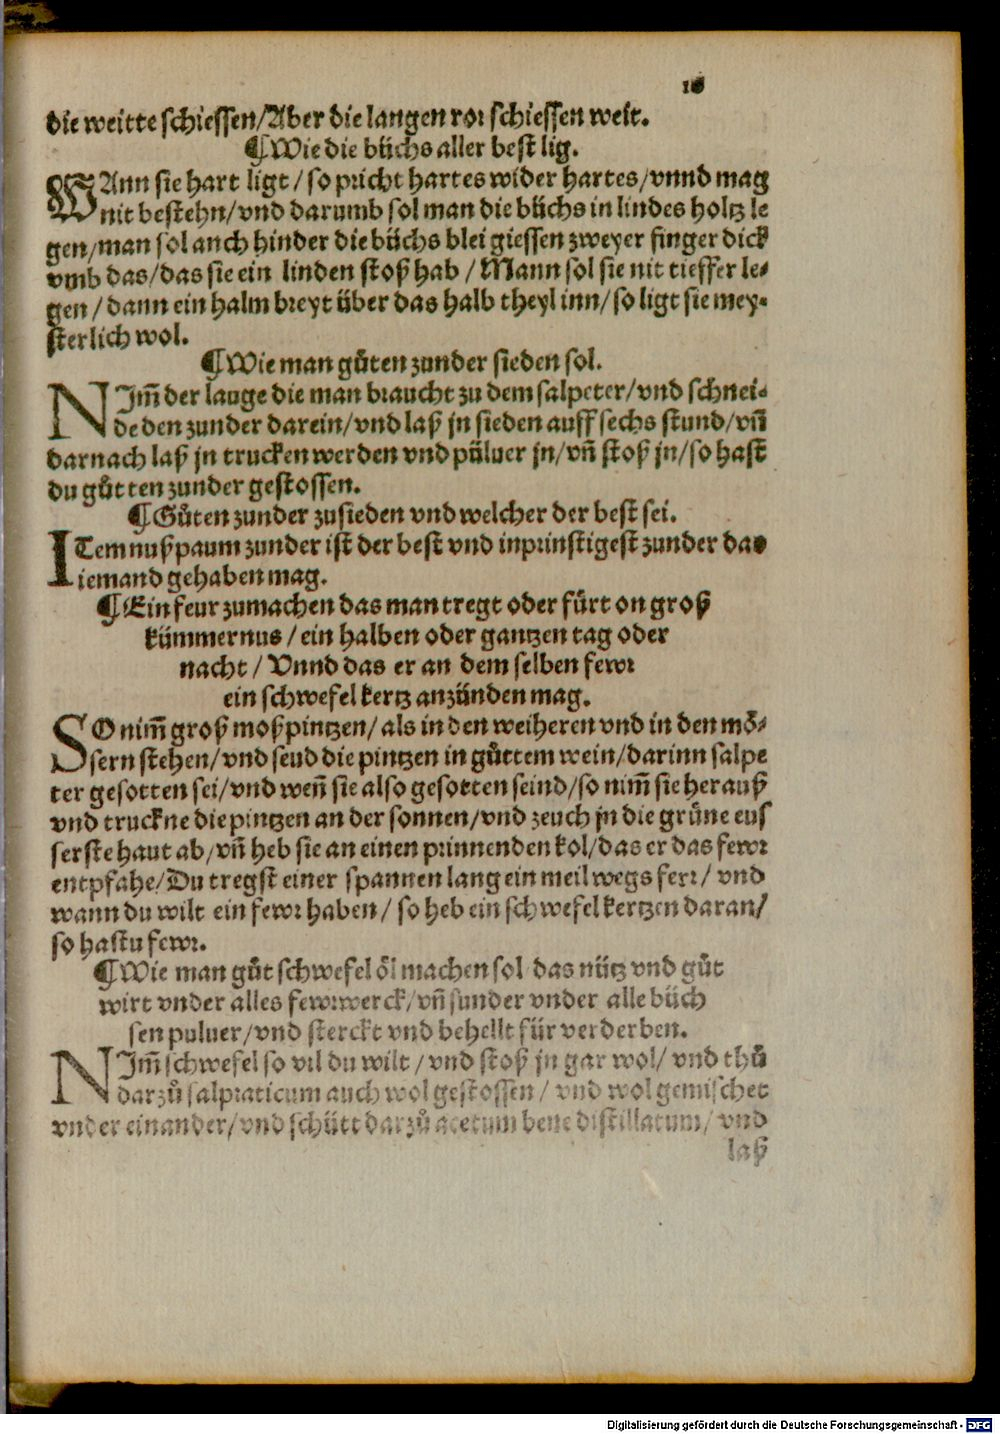 16
die weitte schiessen/Aber die langen ror schiessen weit.
¶Wie die büchs aller best lig.
WAnn sie hart ligt/so pricht hartes wider hartes/vnnd mag
nit bestehn/vnd darumb sol man die büchs in lindes holtz le
gen/man sol auch hinder die büchs blei giessen zweyer finger dick
vmb das/das sie ein linden stoß hab/Mann sol sie nit tieffer le-
gen/dann ein halm breyt über das halb theyl inn/so ligt sie mey-
sterlich wol.
¶Wie man gůten zunder sieden sol.
NIm̃ der lauge die man braucht zu dem salpeter/vnd schnei-
de den zunder darein/vnd laß jn sieden auff sechs stund/vñ
darnach laß jn trucken werden vnd půluer jn/vñ stoß jn/so hast
du gůtten zunder gestossen.
¶Gůten zunder zusieden vnd welcher der best sei.
ITem nußpaum zunder ist der best vnd inprinstigest zunder das
iemand gehaben mag.
¶Ein feur zumachen das man tregt oder fürt on groß
kümmernus/ein halben oder gantzen tag oder
nacht/Vnnd das er an dem selben fewr
ein schwefel kertz anzünden mag.
SO nim̃ groß moßpintzen/als in den weiheren vnd in den mö-
sern stehen/vnd seud die pintzen in gůttem wein/darinn salpe
ter gesotten sei/vnd weñ sie also gesotten seind/so nim̃ sie herauß
vnd truckne die pintzen an der sonnen/vnd zeuch jn die grüne eus
serste haut ab/vñ heb sie an einen prinnenden kol/das er das fewr
entpfahe/Du tregst einer spannen lang ein meil wegs ferr/vnd
wann du wilt ein fewr haben/so heb ein schwefel kertzen daran/
so hastu fewr.
¶Wie man gůt schwefel öl machen sol das nütz vnd gůt
wirt vnder alles fewrwerck/vñ sunder vnder alle büch
sen puluer/vnd sterckt vnd behellt für verderben.
NIm̃ schwefel so vil du wilt/vnd stoß jn gar wol/vnd thů
darzů salpraticum auch wol gestossen/vnd wol gemischet
vnder einander/vnd schütt darzů acetum bene distillatum/vnd
laß
Digitalisierung gefördert durch die Deutsche Forschungsgemeinschaft - DFG